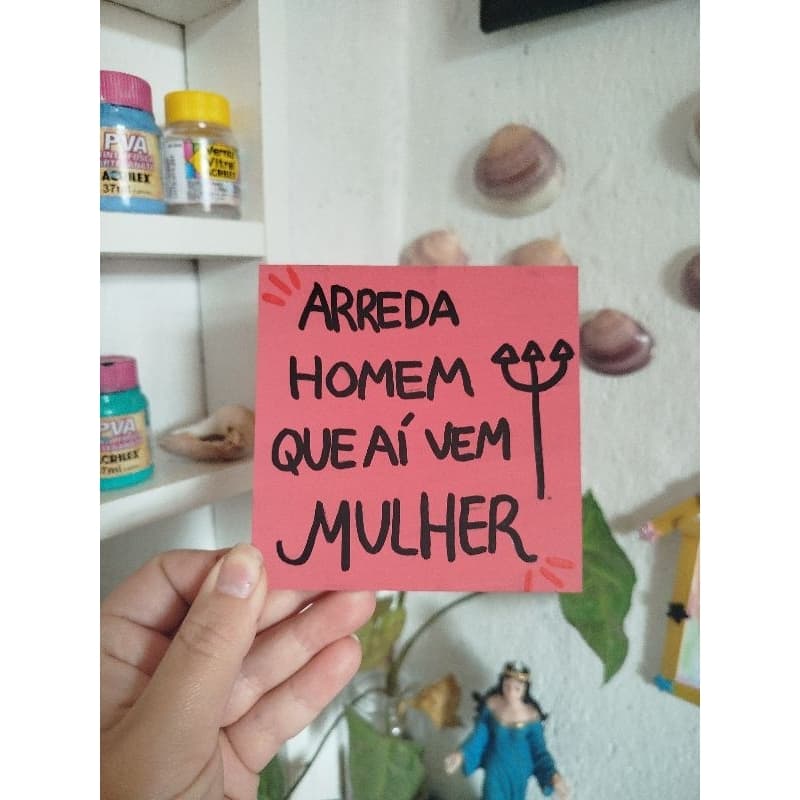 PVA
ACRILEX
37ml
Verniz
Vitral
ACRILEX
ARREDA
HOMEM
QUE AÍ VEM
MULHER
PVA
ACRILEX
37ml